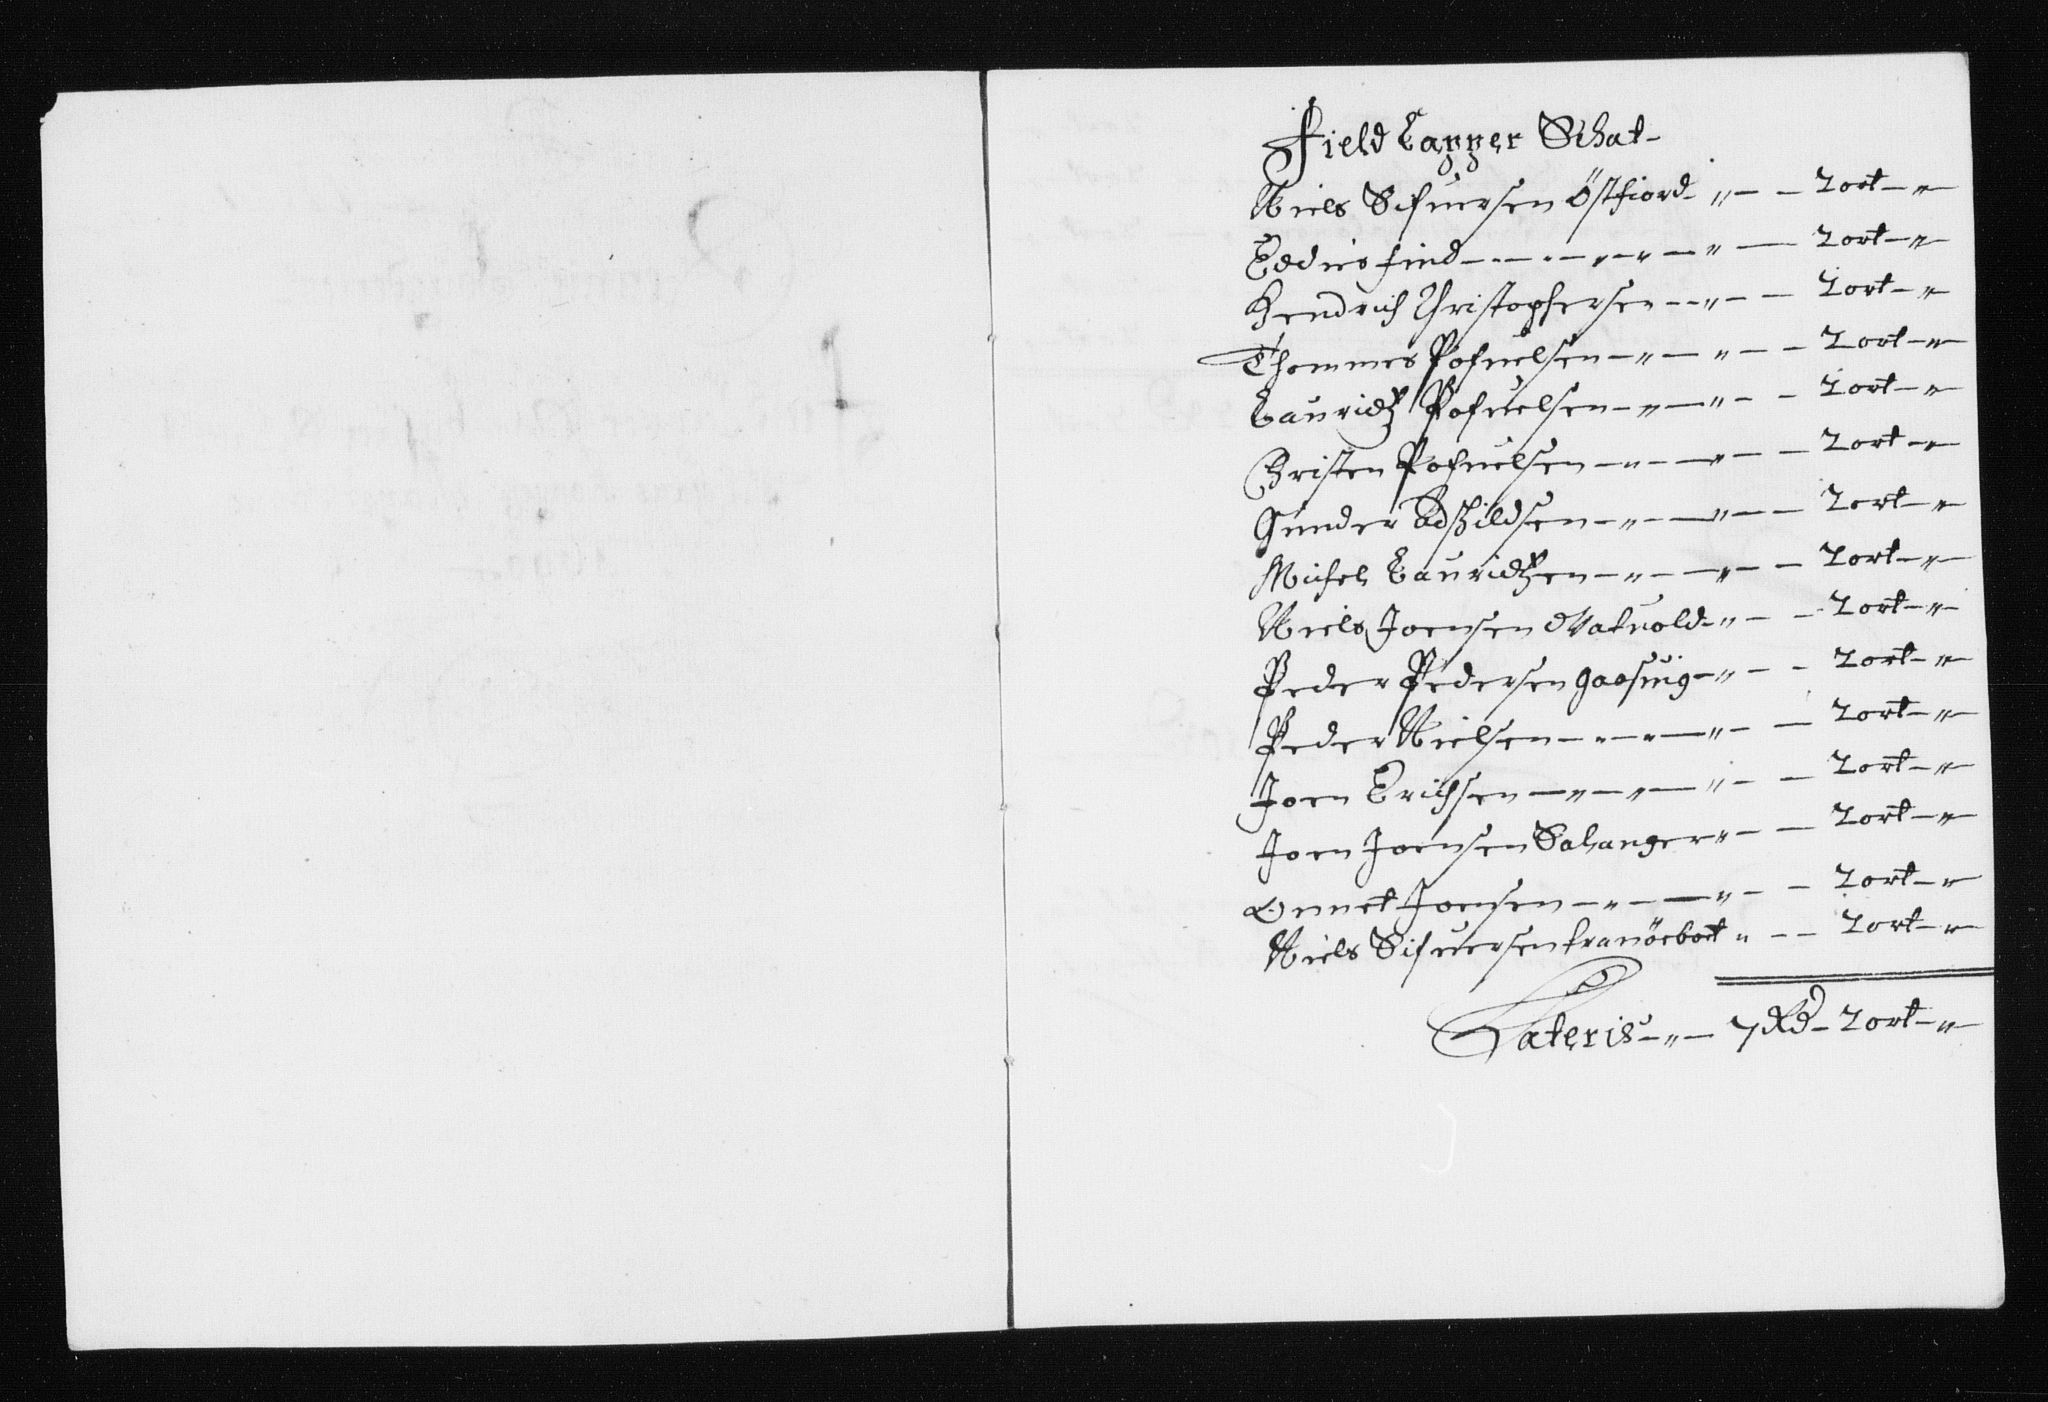 Field Lapper Schat-
Niels Sifuersen Östfiord „ — - 2 ort - „ -
Eddies find - - - - „ - „ - „ — 2 ort - „ -
Hendrich Christophersen - - „ - - 2 ort - „
Thommes Pofuelsen - „ - „ - - 2 ort - „ -
Lauridtz Pofuelsen - „ - „ - - 2 ort - „ -
Christen Pofuelsen - „ - „ - - 2 ort - „ -
Gunder Adschildsen - „ - „ - - 2 ort - „ -
Michel Lauridtzen - „ - „ - - 2 ort - „ -
Niels Joensen Matvold - „ - - 2 ort - „ -
Peder Pedersen Gaasuig - „ - - 2 ort - „ -
Peder Nielsen - - „ - „ - - 2 ort - „ -
Joen Erichsen - „ - „ - „ - - 2 ort - „ -
Joen Joensen Salanger „ - - 2 ort - „ -
Onnet Joensen - „ - „ - - 2 ort - „ -
Niels Sifuersen franöebott „ - - 2 ort - „ -
Lateris - „ - 7 Rd - 2 ort - „ -